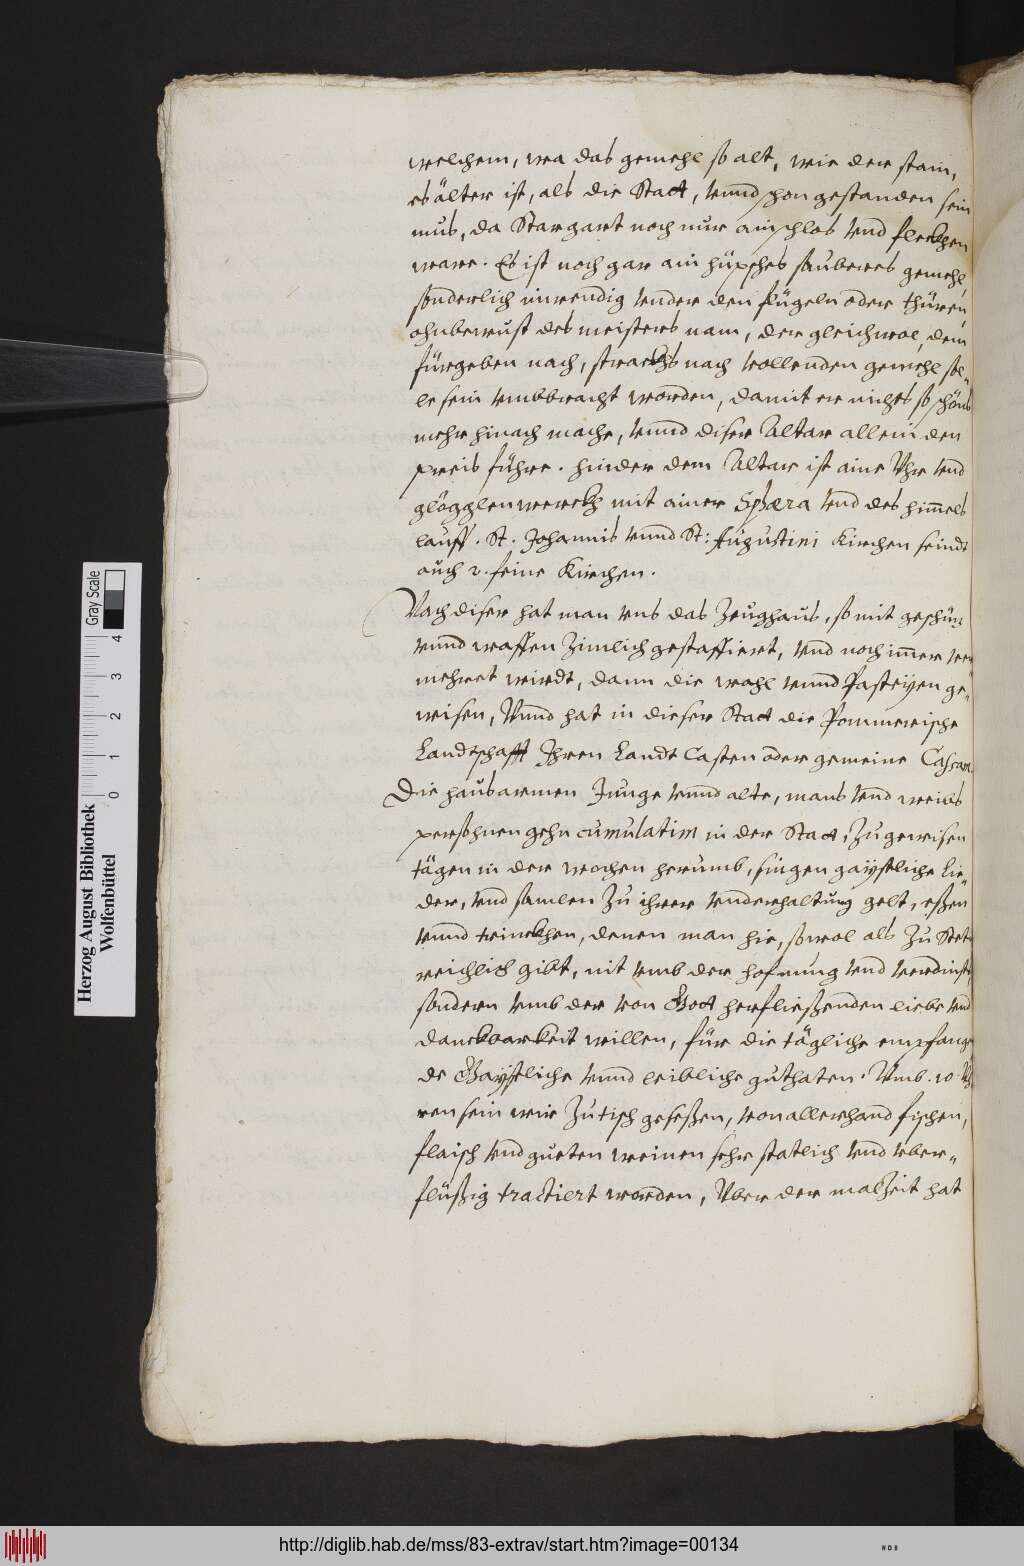 welchem, wa das gemehl so alt, wie der stain,
es älter ist, als die Statt, vnnd schon gestanden sein
mus, da Stargart noch nur ain schlos vnd fleckhen
ware. Es ist noch gar ain hüpsches sauberes gemehl,
sonderlich inwendig vnder den flügeln oder thüren,
ohnbewust des meisters nam, der gleichwol, dem
fürgeben nach, strackhs nach vollenden gemehl sol„
le sein vmbbracht worden, damit er nichts so schöns
mehr hinach mache, vnnd diser Altar allein den
preis führe. hinder dem Altar ist aine Vhr vnd
glögglenwerckh mit ainer Sphæra vnd des him̄els
lauff. St. Johannis vnnd St: Augustini Kirchen seindt
auch 2. feine Kirchen.
Nach diser hat man vns das Zeughaus, so mit geschüz
vnnd waffen zimlich gestaffiert, vnd noch im̄er ver
mehret wirdt, dann die wahl vnnd Pasteyen ge„
wisen, Vnnd hat in dieser Statt die Pommerische
Landtschafft Ihren Landt Casten oder gemeine Cassam.
Die hausarmen Junge vnnd alte, mans vnd weibs
persohnen gehn cumulatim in der Statt, zu gewisen
tägen in der wochen herumb, singen gaystliche Lie„
der, vnd samlen zu ihrer vnderhaltung gelt, eßen
vnnd trinckhen, denen man hie, sowol als zu Stet
reichlich gibt, nit vmb der hofnung vnd verdinst,
sondern vmb der von Gott herfließenden liebe vnd
danckbarkeit willen, für die tägliche empfange
de Gaystliche vnnd leibliche guthaten. Vmb. 10 Vh
ren sein wir zu tisch geseßen, von allerhand fischen,
flaisch vnd gueten weinen sehr statlich vnd vber„
flüßig tractiert worden, Vber der malzeit hat
Herzog August Bibliothek
Wolfenbüttel
0 1 2 3 4
Gray Scale
http://diglib.hab.de/mss/83-extrav/start.htm?image=00134
WDB